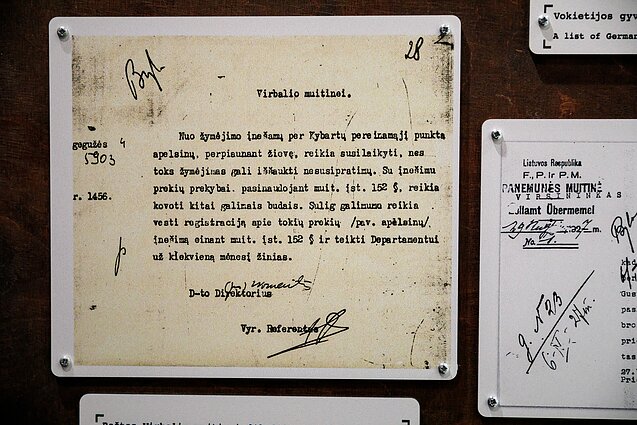 28
Virbalio muitinei.
gegužės 4
5903
r. 1456.
Nuo žymėjimo įnešamų per Kybartų pereinamąjį punktą
apelsinų, perpiaunant žiovę, reikia susilaikyti, nes
toks žymėjimas gali iššaukti nesusipratimų. Su įnešimu
prekių prekybai pasinaudojant muit. įst. 152 §, reikia
kovoti kitai galinais budais. Sulig galimumo reikia
vesti registraciją apie tokių prekių /pav. apelsinų/
įnešimą einant muit. įst. 152 § ir teikti Departamentui
už kiekvieną mėnesį žinias.
D-to Direktorius
Vyr. Referentas
Vokietijos gyv
A list of German
Lietuvos Respublika
F. P. ir P. M.
PANEMUNĖS MUITINĖ
VIRŠININKAS
Zollamt Übermemel
m.
No
g. N 23
Gus
pas
bro
pri
tas
27.
Pri